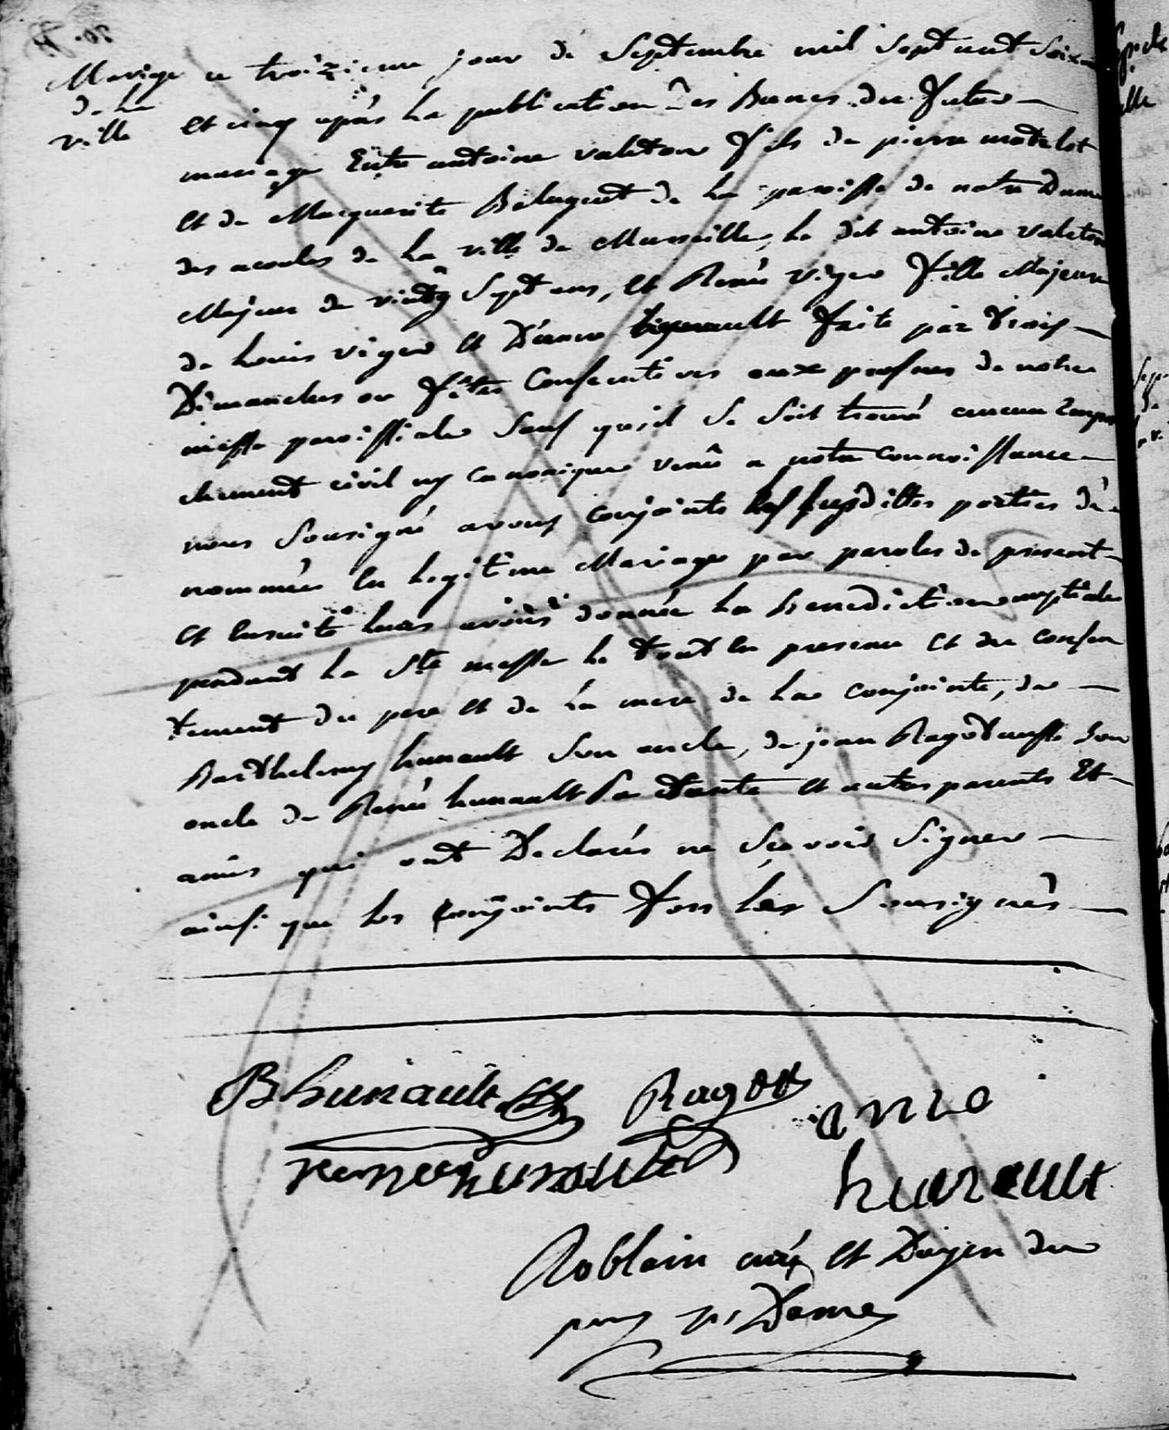 Mariage
de la
ville
ce troizieme jour de Septembre mil Sept cent Soix
Et cinq apres la publication des Bancs du futur
mariage Entre antoine valeton fils de pierre matelot
Et de Marguerite de la paroisse de notre Dame
des acoules de la ville de Marseille, le dit antoine valeton
Majeur de vingt Sept ans, Et René viger fille Majeure
de Louis viger Et faite par trois
Dimanches ou fetes Consecutives aux prosnes de notre
messe paroissiale Sans qu'il Se Soit trouvé aucun Empe
chement civil ny canonique venû a notre connoissance
nous Sousigné avons conjoints les susdittes parties dé
nommées En Legitime Mariage par paroles de present
Et Ensuite leurs avons donnée La benediction nuptiale
pendant la Ste messe le tout En presence Et du consen
tement du pere Et de La mere de la conjointe, de
Barthelemy hunault Son oncle, de jean Ragot aussi Son
oncle de René hunault Sa tante Et autres parents Et
amis qui ont Declarés ne Scavoir Signer
ainsi que les conjoints fors les Sousignés
B hunault Ragot anne
renee hunault hunault
Roblain curé Et Doyen du